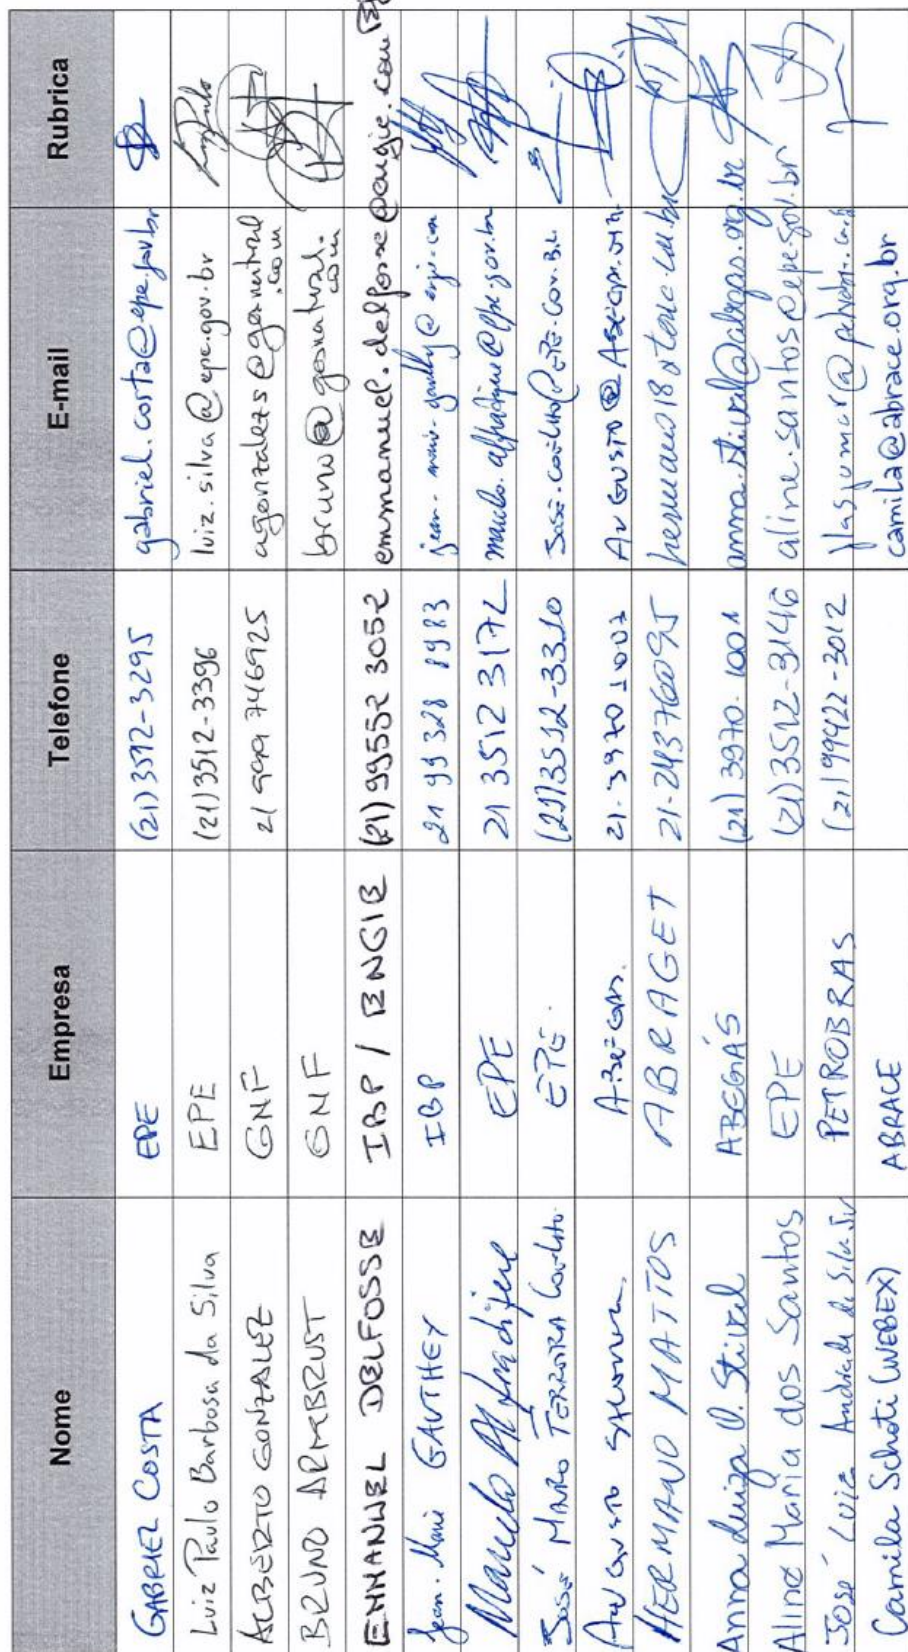 Nome Empresa Telefone E-mail Rubrica
GABRIEL COSTA EPE (21) 3512-3295 gabriel.costa@epe.gov.br
Luiz Paulo Barbosa da Silva EPE (21) 3512-3396 luiz.silva@epe.gov.br
ALBERTO GONZALEZ GNF 21 999746925 agonzalezs@gasnatural.com
BRUNO ARMBRUST GNF bruno@gasnatural.com
EMMANUEL DELFOSSE IBP / ENGIE (21) 99552 3052 emmanuel.delfosse@engie.com
Jean-Marie GAUTHEY IBP 21 99 328 8983 jean-marie.gauthey@engie.com
Marcelo Alfradique EPE 21 3512 3172 marcelo.alfradique@epe.gov.br
José MAURO FERREIRA Coelho EPE (21) 3512-3310 José.coelho@EPE.gov.br
AUGUSTO SALOMON ABEGÁS 21-3970 1001 AUGUSTO@ABEGAS.ORG.
HERMANO MATTOS ABRAGET 21-24376095
Anna Luiza Stival ABEGÁS (21) 3970-1001 anna.stival@abegas.org.br
Aline Maria dos Santos EPE (21) 3512-3146 aline.santos@epe.gov.br
José Luiz Andrade da Silva PETROBRAS (21) 99422-3012
Camila Schoti (WEBEX) ABRACE camila@abrace.org.br